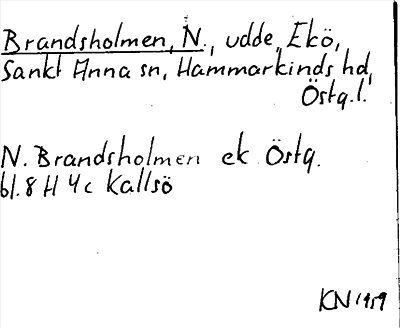 Brandsholmen, N., udde, Ekö,
Sankt Anna sn, Hammarkinds hd,
Östg.l.
N. Brandsholmen ek Östg.
bl. 8 H 4 c Kallsö
KN 1959